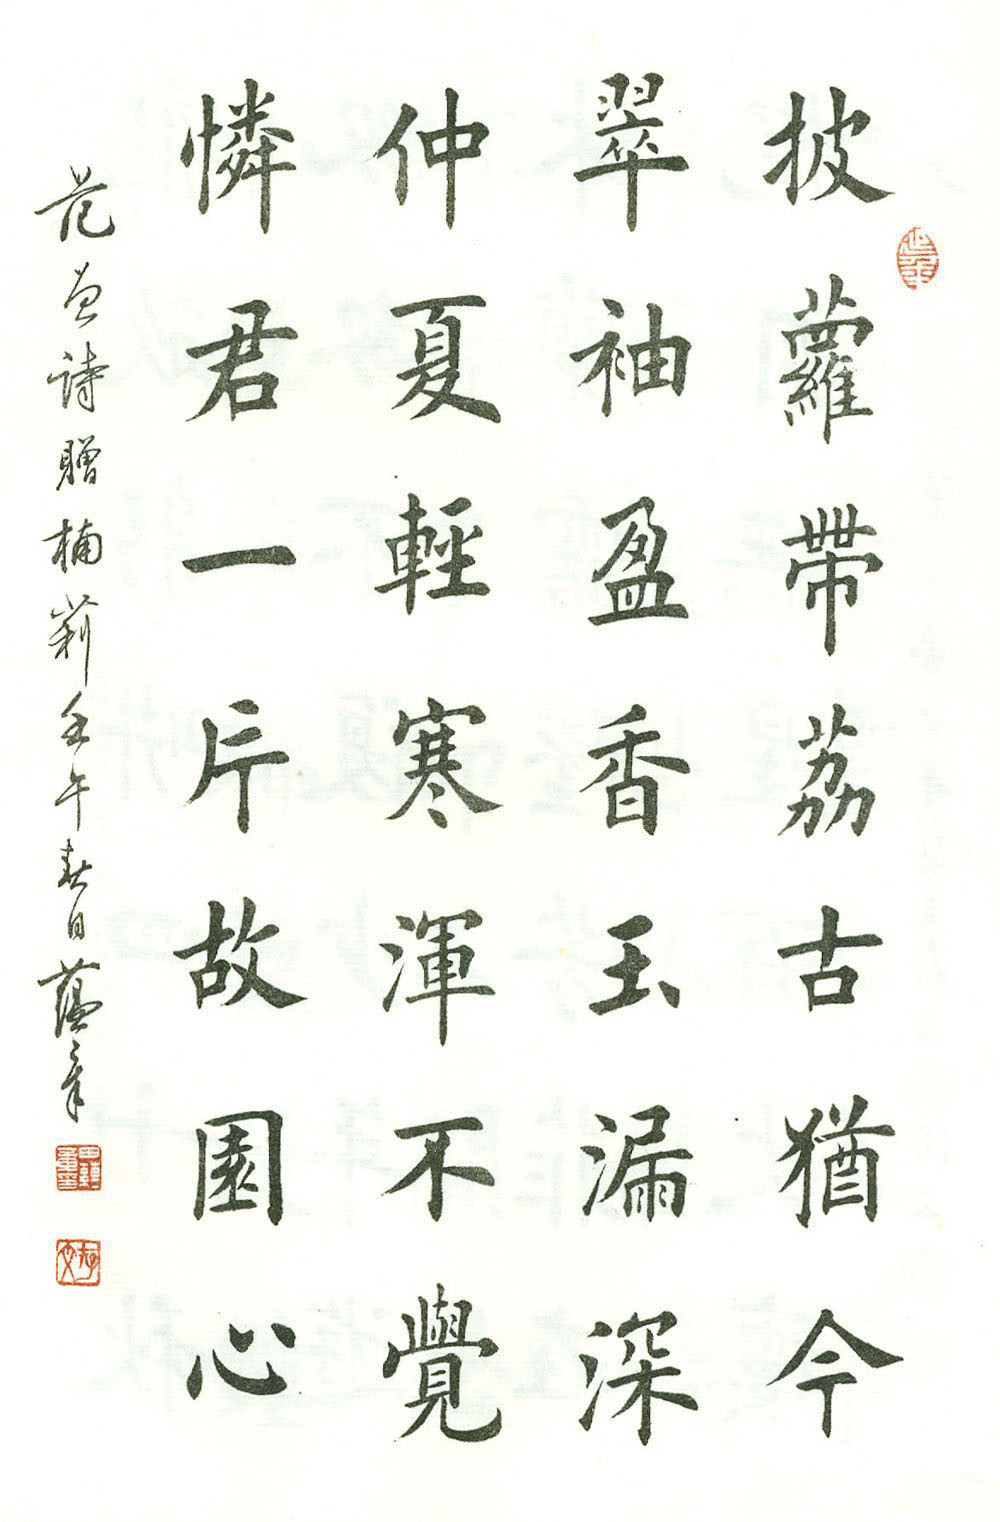 披蘿帶荔古猶今
翠袖盈香玉漏深
仲夏輕寒渾不覺
憐君一片故園心
范曾詩贈楠莉壬午春日蘊章